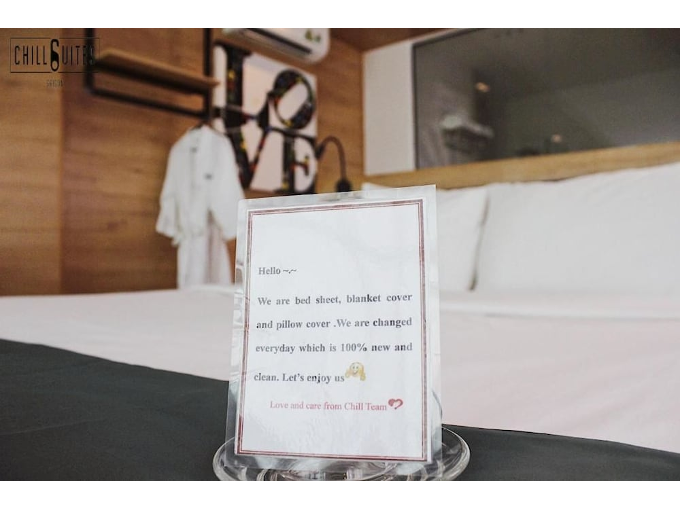 CHILL SUITES
LOVE
Hello ~.~
We are bed sheet, blanket cover
and pillow cover .We are changed
everyday which is 100% new and
clean. Let's enjoy us
Love and care from Chill Team